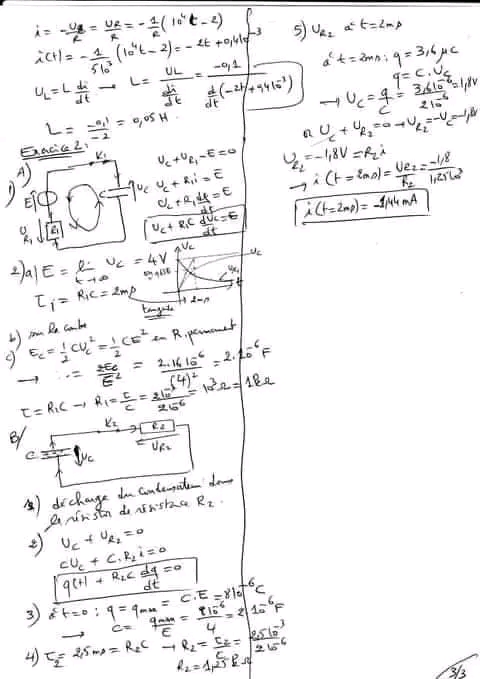 i = -U_R/R = U_R/R = -1/R (10^4 t - 2)
i(t) = -1/5·10^3 (10^4 t - 2) = -2t + 0,4·10^-3
U_L = L di/dt → L = U_L/(di/dt) = -0,1/(d/dt(-2t + 0,4·10^-3))
L = -0,1/-2 = 0,05 H.
Exercice 2:
A)
1)
K1
E
U_R1
R1
C
U_C
i
U_C + U_R1 - E = 0
U_C + R1 i = E
U_C + R1 dq/dt = E
U_C + R1C dU_C/dt = E
2) a) E = lim U_C = 4V
t→∞
τ1 = R1C = 2ms
U_C
U_C
U_R1
t
2ms
tangente
b) sur la courbe
c) E_C = 1/2 C U_C² = 1/2 C E² en R. permanent
→ C = 2E_C/E² = 2·16·10^-6/(4)² = 2·10^-6 F
τ = R1C → R1 = τ/C = 2·10^-3/2·10^-6 = 10^3 Ω = 1kΩ
B)
K2
R2
U_R2
C
U_C
1) décharge du condensateur dans
le résistor de résistance R2.
2) U_C + U_R2 = 0
CU_C + C.R2 i = 0
q(t) + R2C dq/dt = 0
3) à t=0; q = q_max = C.E = 8·10^-6 C
→ C = q_max/E = 8·10^-6/4 = 2·10^-6 F
4) τ2 = 2,5ms = R2C → R2 = τ2/C = 2,5·10^-3/2·10^-6
R2 = 1,25 kΩ
5) U_R2 à t=2ms
à t=2ms; q = 3,6 µC
q = C.U_C
→ U_C = q/C = 3,6·10^-6/2·10^-6 = 1,8V
or U_C + U_R2 = 0 → U_R2 = -U_C = -1,8V
U_R2 = -1,8V = R2 i
→ i(t=2ms) = U_R2/R2 = -1,8/1,25·10^3
i(t=2ms) = -1,44 mA
3/3